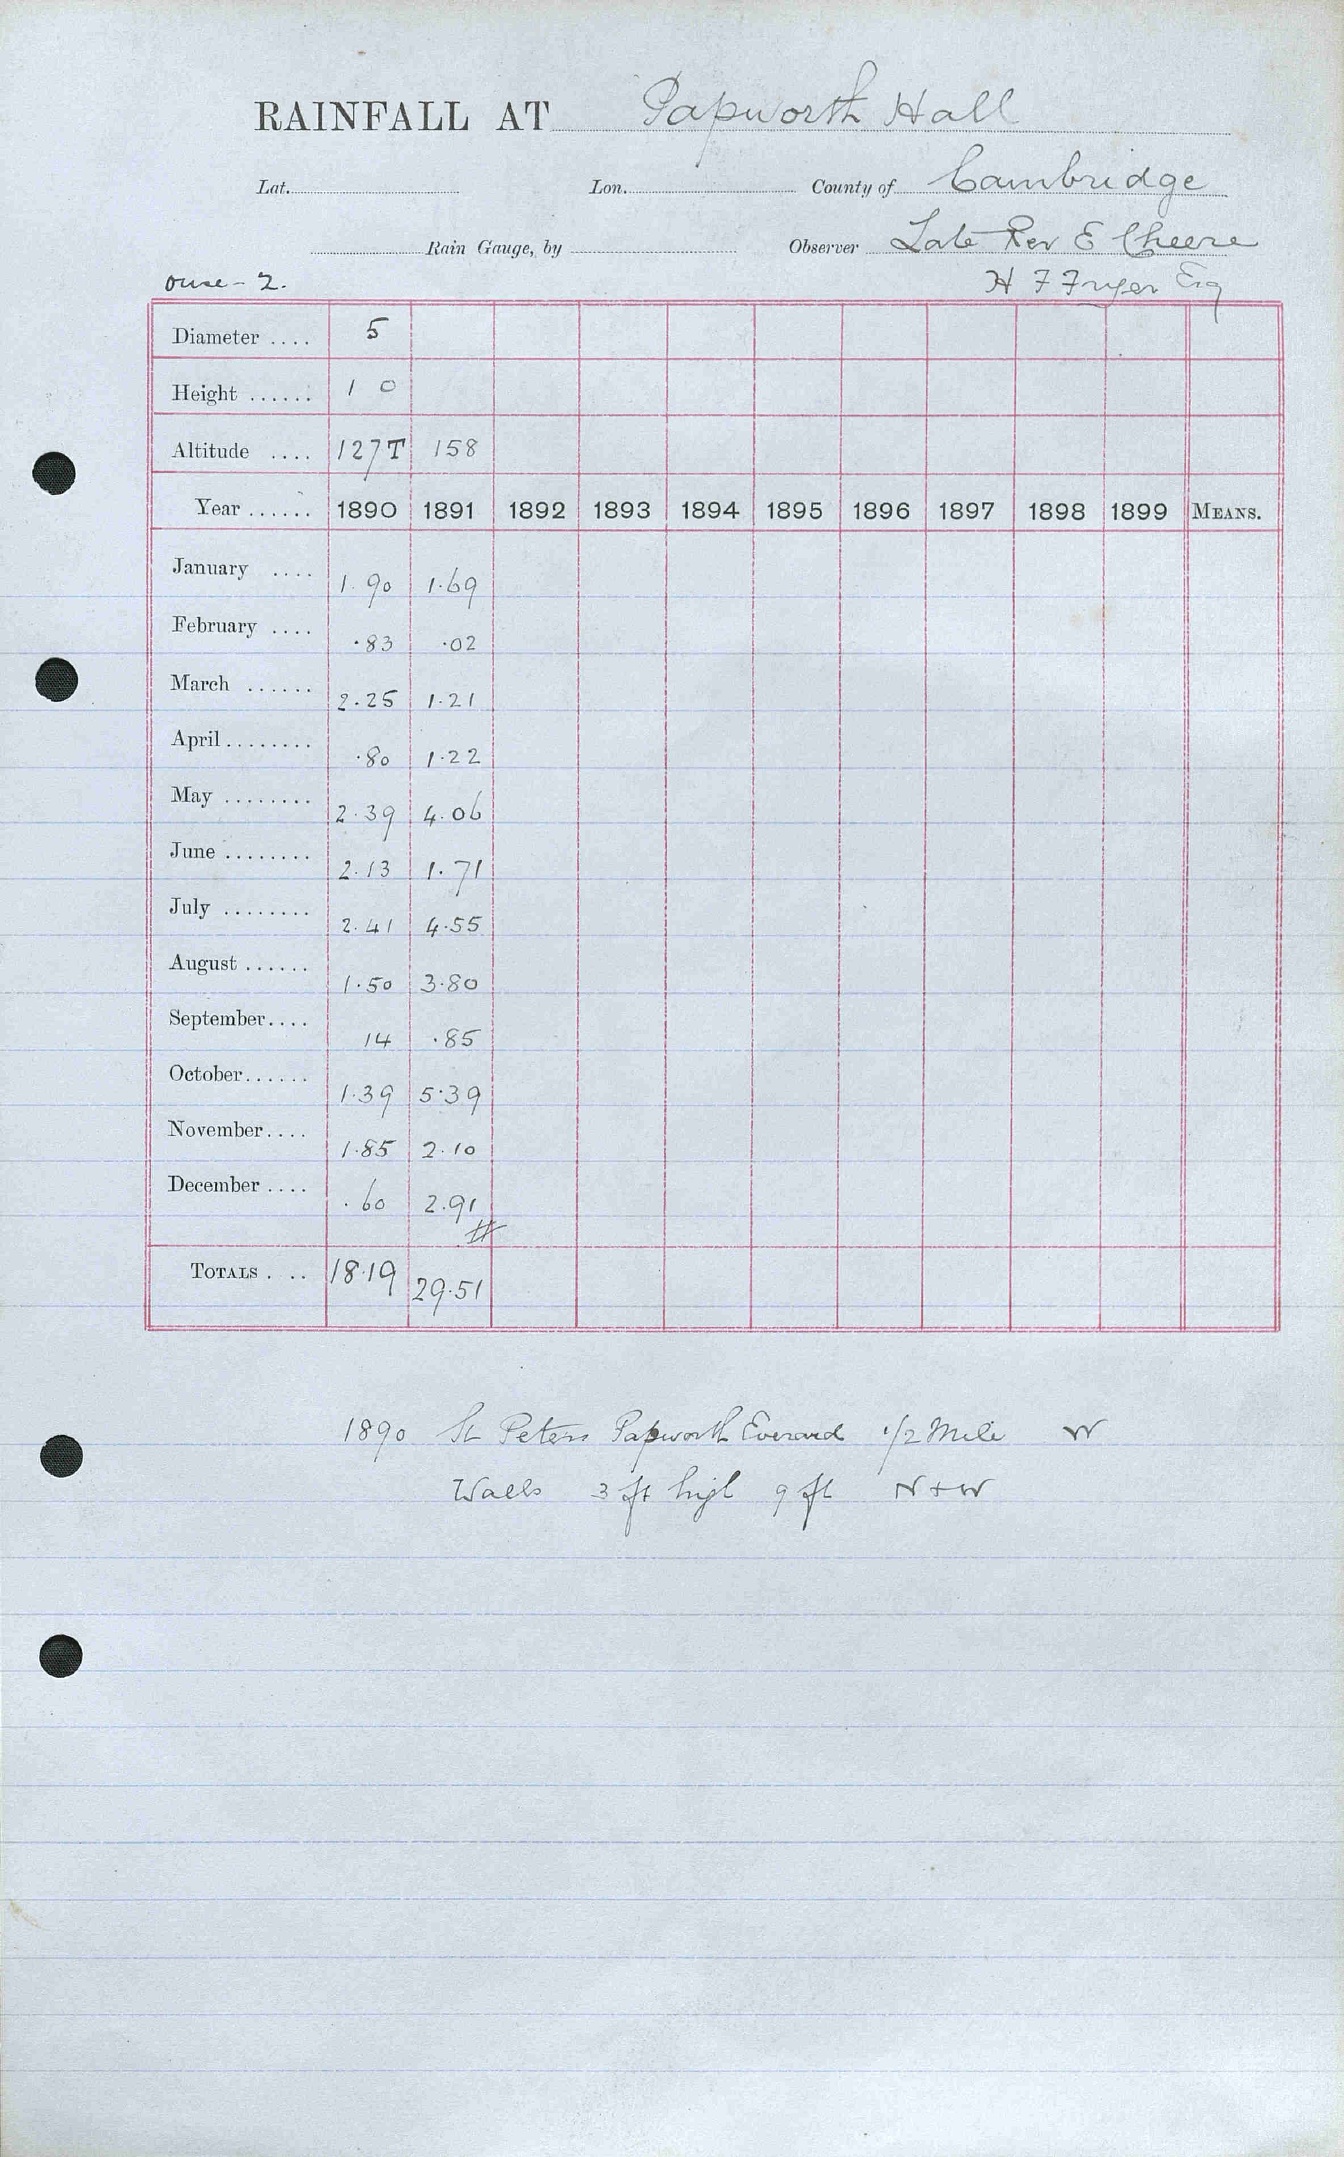 RAINFALL AT Papworth Hall
Lat. Lon. County of Cambridge
Rain Gauge, by Observer Late Rev E Cheere
Ouse - 2. H F Fryer Esq
Diameter .... 5
Height ...... 1 0
Altitude .... 127T 158
Year ...... 1890 1891 1892 1893 1894 1895 1896 1897 1898 1899 MEANS.
January .... 1.90 1.69
February .... .83 .02
March ...... 2.25 1.21
April ........ .80 1.22
May ........ 2.39 4.06
June ........ 2.13 1.71
July ........ 2.41 4.55
August ...... 1.50 3.80
September.... 14 .85
October...... 1.39 5.39
November.... 1.85 2.10
December .... .60 2.91
#
TOTALS . .. 18.19 29.51
1890 St Peters Papworth Everard 1/2 Mile W
Walls 3 ft high 9 ft N + W